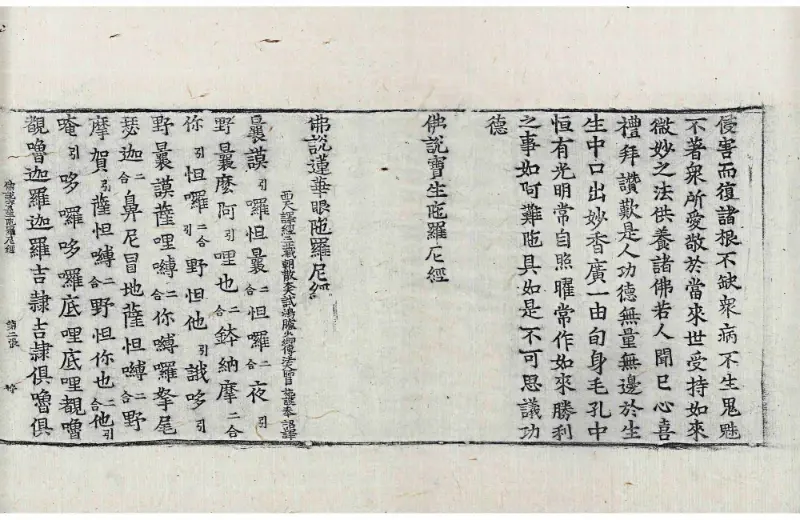 侵害而復諸根不缺衆病不生鬼魅
不著衆所愛敬於當來世受持如來
微妙之法供養諸佛若人聞已心喜
禮拜讚歎是人功德無量無邊於生
生中口出妙香廣一由旬身毛孔中
恒有光明常自照曜常作如來勝利
之事如阿難陁具如是不可思議功
德
佛說寶生陁羅尼經
佛說蓮華眼陁羅尼經
西天譯經三藏朝散大夫試鴻臚少卿傳法大師臣施護奉 詔譯
曩謨引囉怛曩二合怛囉二合夜引
野曩麽阿引哩也二合鉢納摩二合
你引怛囉二合野怛他引誐哆引
野曩謨薩哩嚩二合你嚩囉拏尾
瑟迦二合鼻尼冒地薩怛嚩二合野
摩賀引薩怛嚩二合野怛你也二合他引
唵引哆囉哆囉底哩底哩覩嚕
覩嚕迦羅迦羅吉隷吉隷俱嚕俱